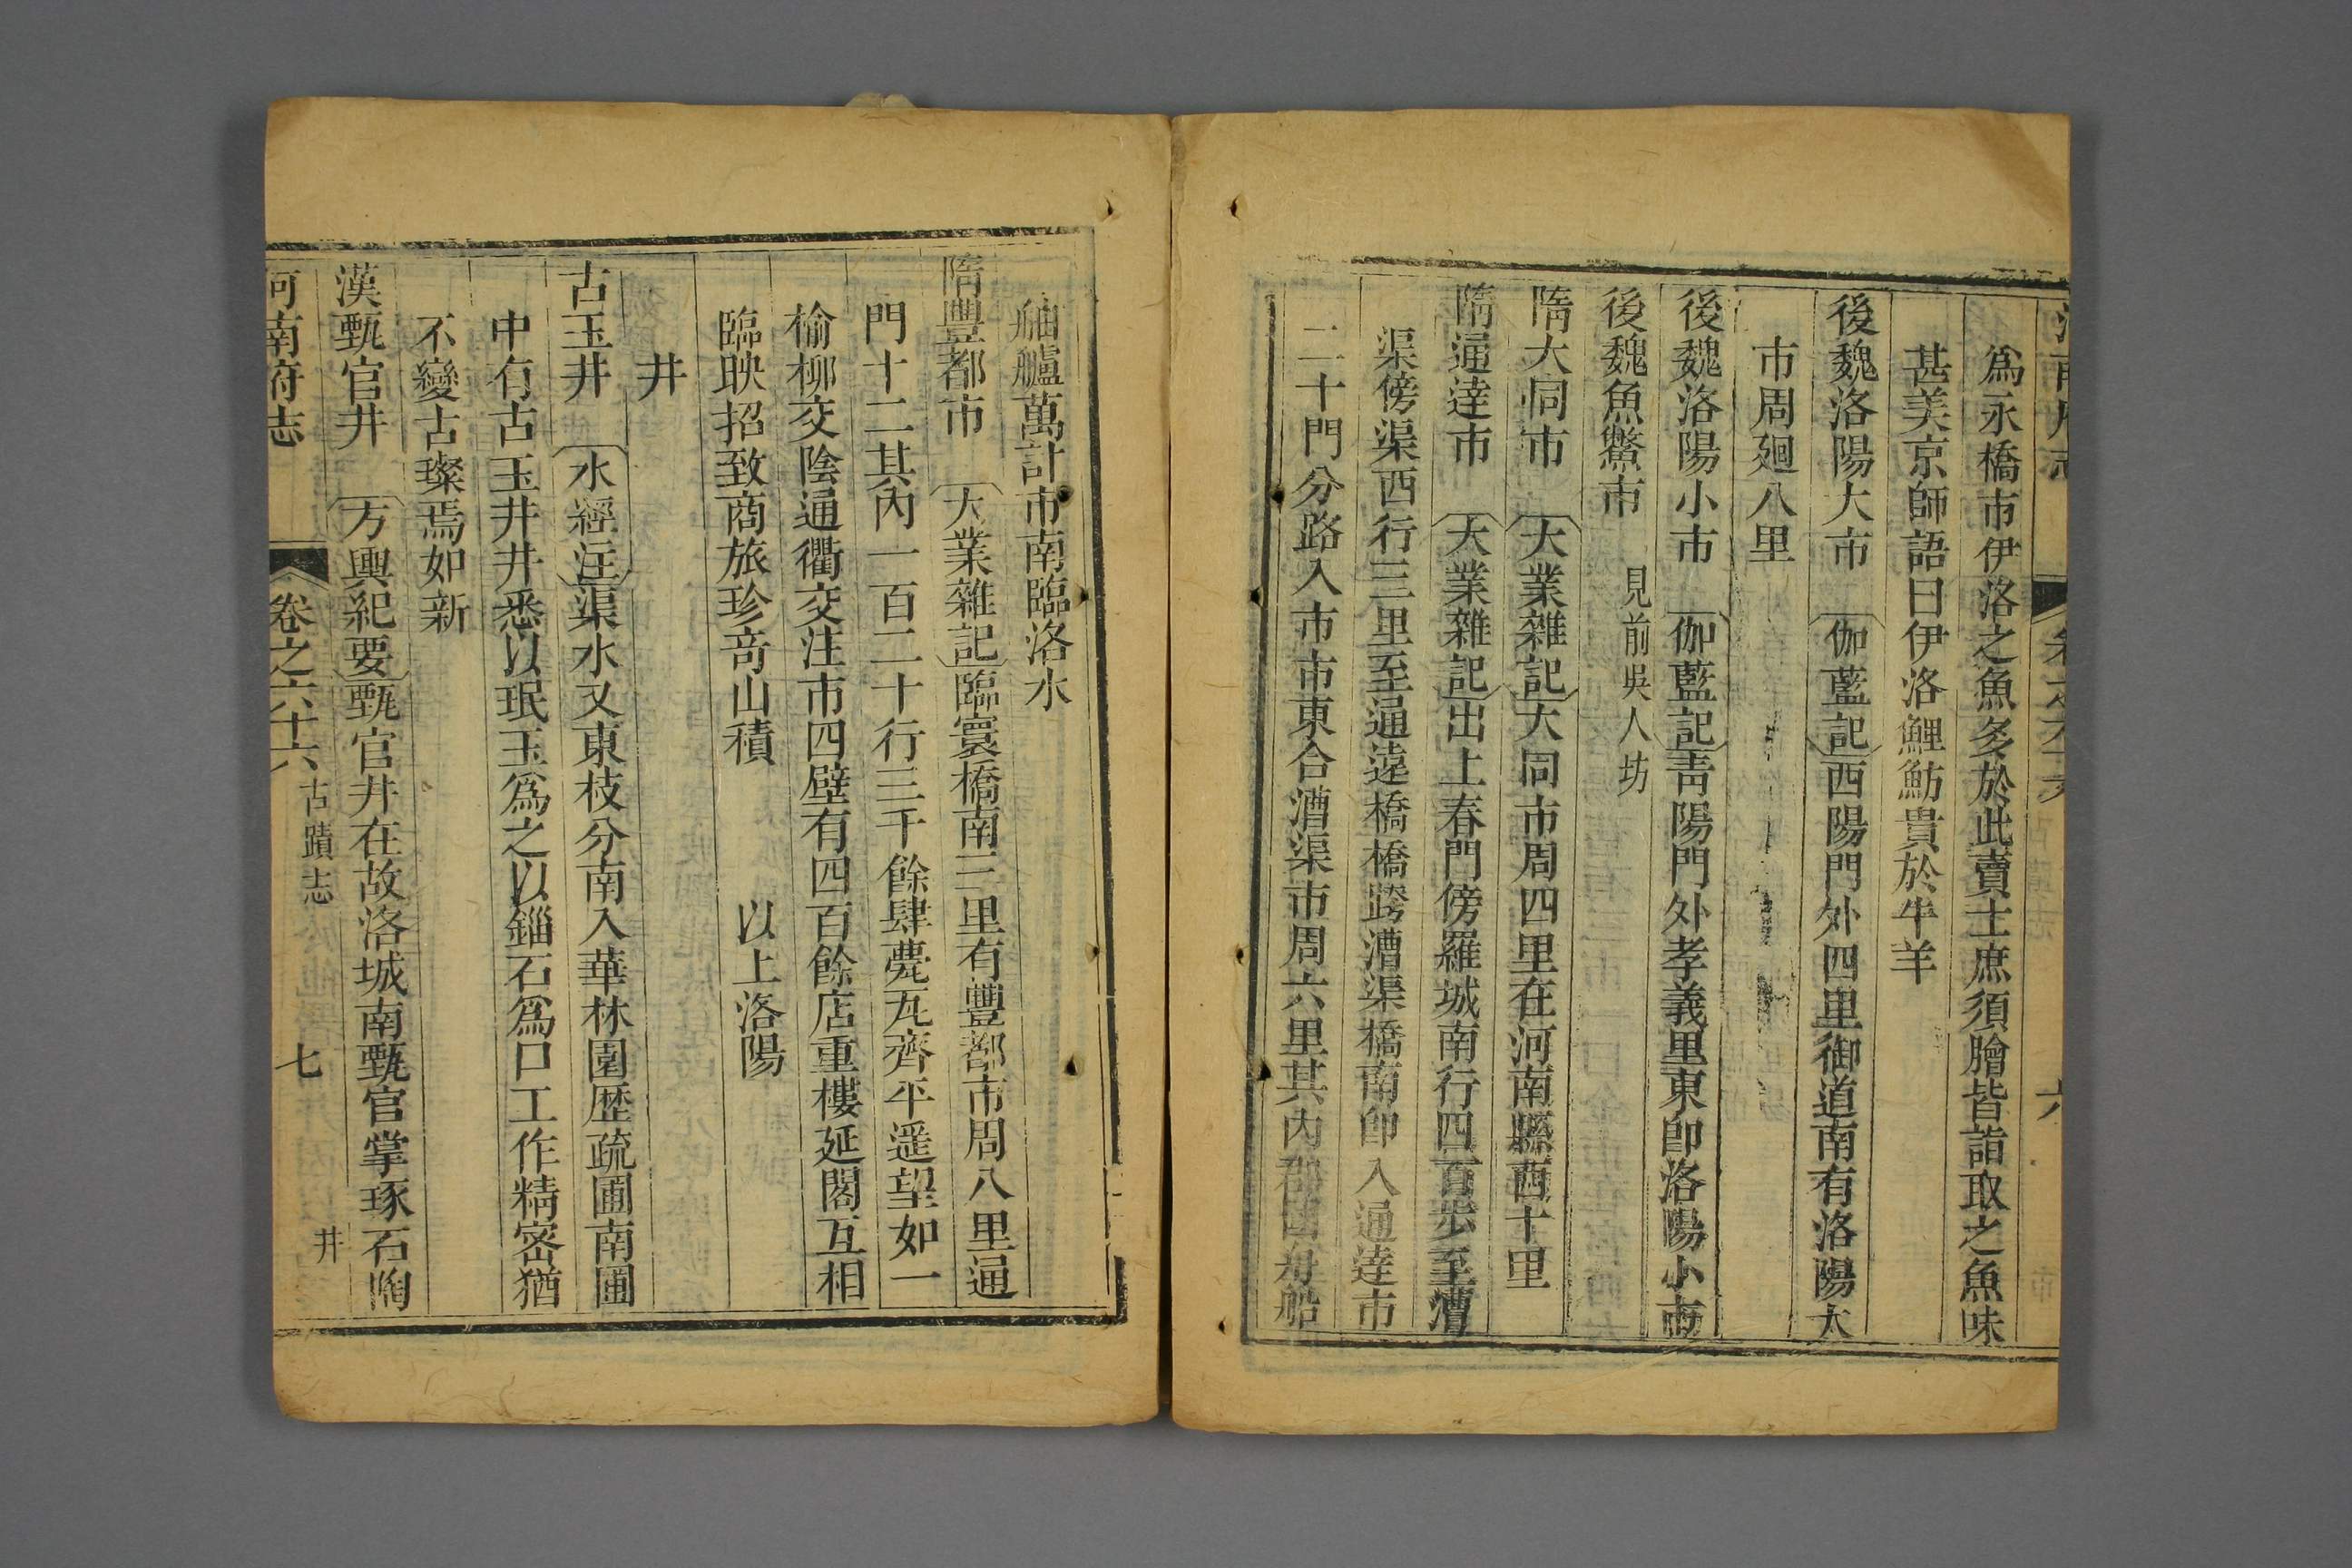 爲永橋市伊洛之魚多於此賣士庶須膾皆詣取之魚味
甚美京師語曰伊洛鯉魴貴於牛羊
後魏洛陽大市 伽藍記西陽門外四里御道南有洛陽大
市周廻八里
後魏洛陽小市 伽藍記青陽門外孝義里東卽洛陽小市
後魏魚鱉市 見前吳人坊
隋大同市 大業雜記大同市周四里在河南縣西十里
隋通達市 大業雜記出上春門傍羅城南行四百步至漕
渠傍渠西行三里至通遠橋橋跨漕渠橋南卽入通達市
二十門分路入市市東合漕渠市周六里其內郡國舟船
舳艫萬計市南臨洛水
隋豐都市 大業雜記臨寰橋南二里有豐都市周八里通
門十二其內一百二十行三千餘肆甍瓦齊平遥望如一
榆柳交陰通衢交注市四壁有四百餘店重樓延閣互相
臨映招致商旅珍奇山積 以上洛陽
井
古玉井 水經注渠水又東枝分南入華林園歷疏圃南圃
中有古玉井井悉以珉玉爲之以錙石爲口工作精密猶
不變古璨焉如新
漢甄官井 方輿紀要甄官井在故洛城南甄官掌琢石陶
河南府志 卷之六十六 古蹟志 井 七